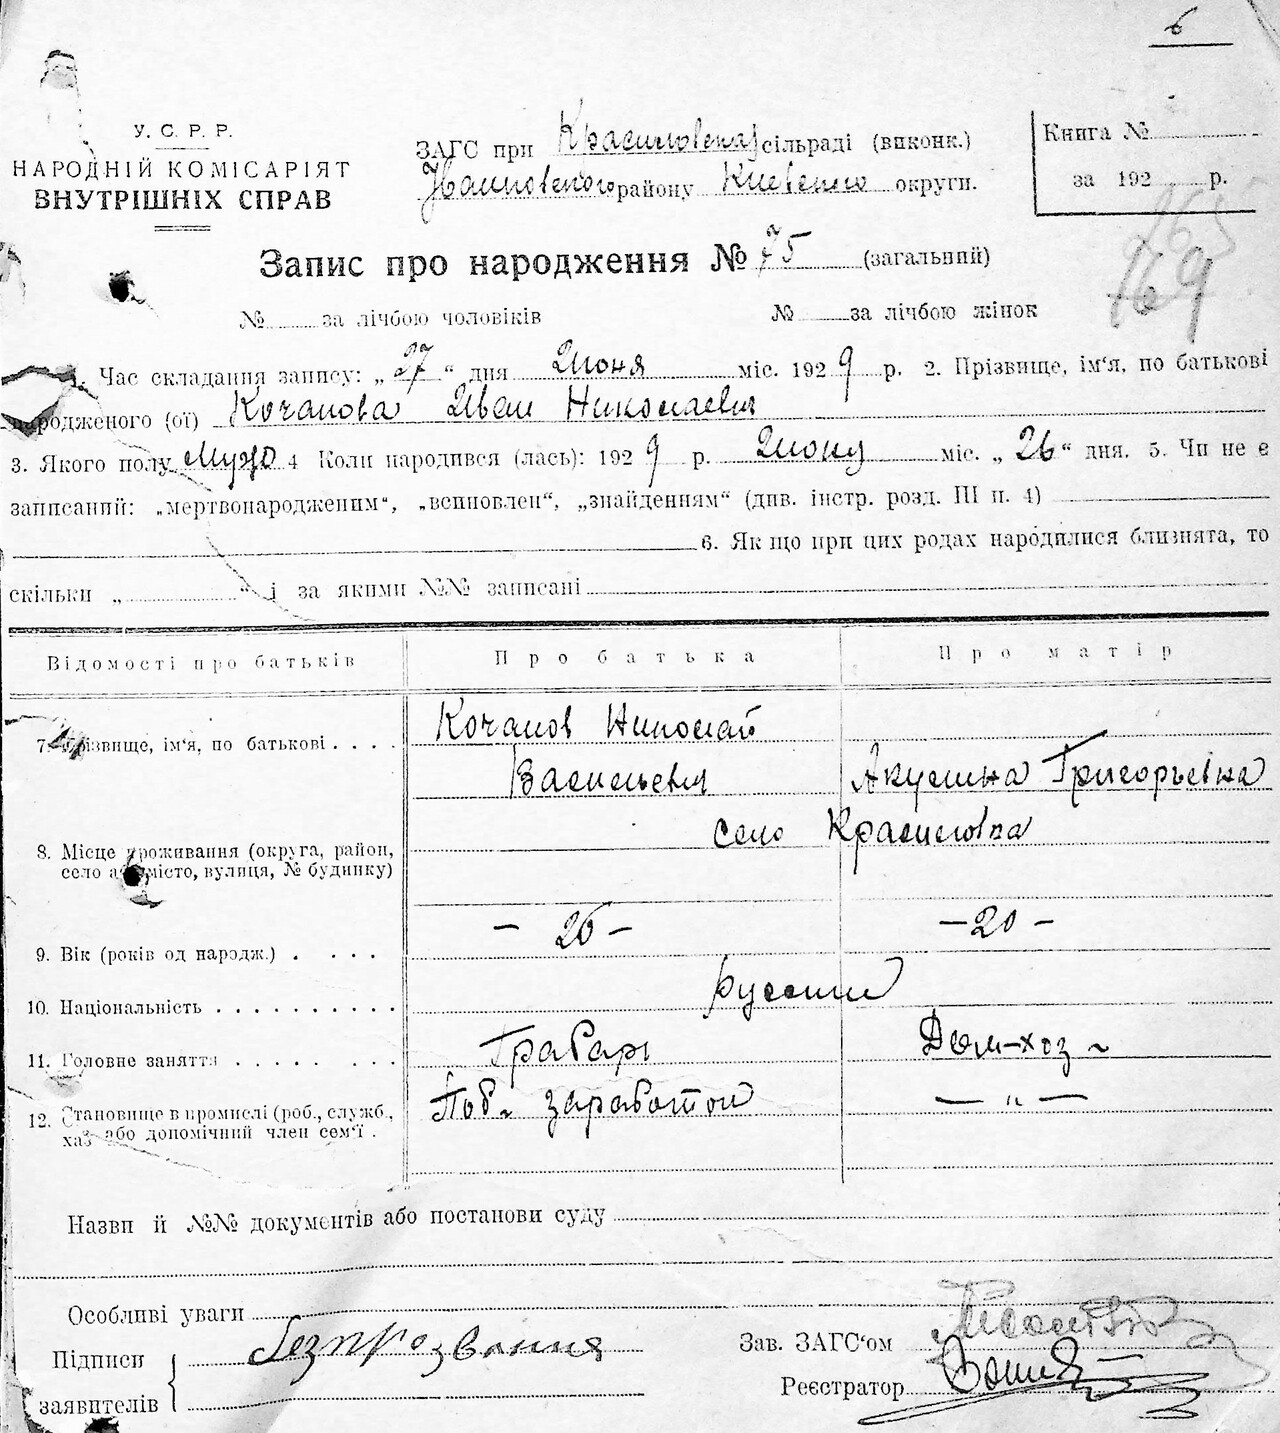 6
У. С. Р. Р.
НАРОДНІЙ КОМІСАРІЯТ
ВНУТРІШНІХ СПРАВ
ЗАГС при Красиловской сільраді (виконк.)
району Киевской округи.
Книга №
за 192 р.
Запис про народження № 75 (загальний)
169
№ за лічбою чоловіків № за лічбою жінок
1. Час складання запису: „27“ дня Июня міс. 1929 р. 2. Прізвище, ім‘я, по батькові
народженого (ої) Кочанова Иван Николаевич
3. Якого полу Муж 4 Коли народився (лась): 1929 р. Июня міс. „26“ дня. 5. Чи не є
записаний: „мертвонародженим“, „всиновлен“, „знайденням“ (див. інстр. розд. III п. 4)
6. Як що при цих родах народилися близнята, то
скільки „ “ і за якими №№ записані
Відомості про батьків Про батька Про матір
7. Прізвище, ім‘я, по батькові . . . . Кочанов Николай
Васильевич Акулина Григорьевна
8. Місце проживання (округа, район, село Красиловка
село або місто, вулиця, № будинку)
9. Вік (років од народж.) . . . . — 26 — — 20 —
10. Національність . . . . . . . . . . русские
11. Головне заняття . . . . . . . . . Грабарь Дом-хоз
12. Становище в промислі (роб., служб., Поб. заработок — „ —
хаз або допомічний член сем‘ї .
Назви й №№ документів або постанови суду
Особливі уваги
Підписи
заявителів
Зав. ЗАГС‘ом
Реєстратор